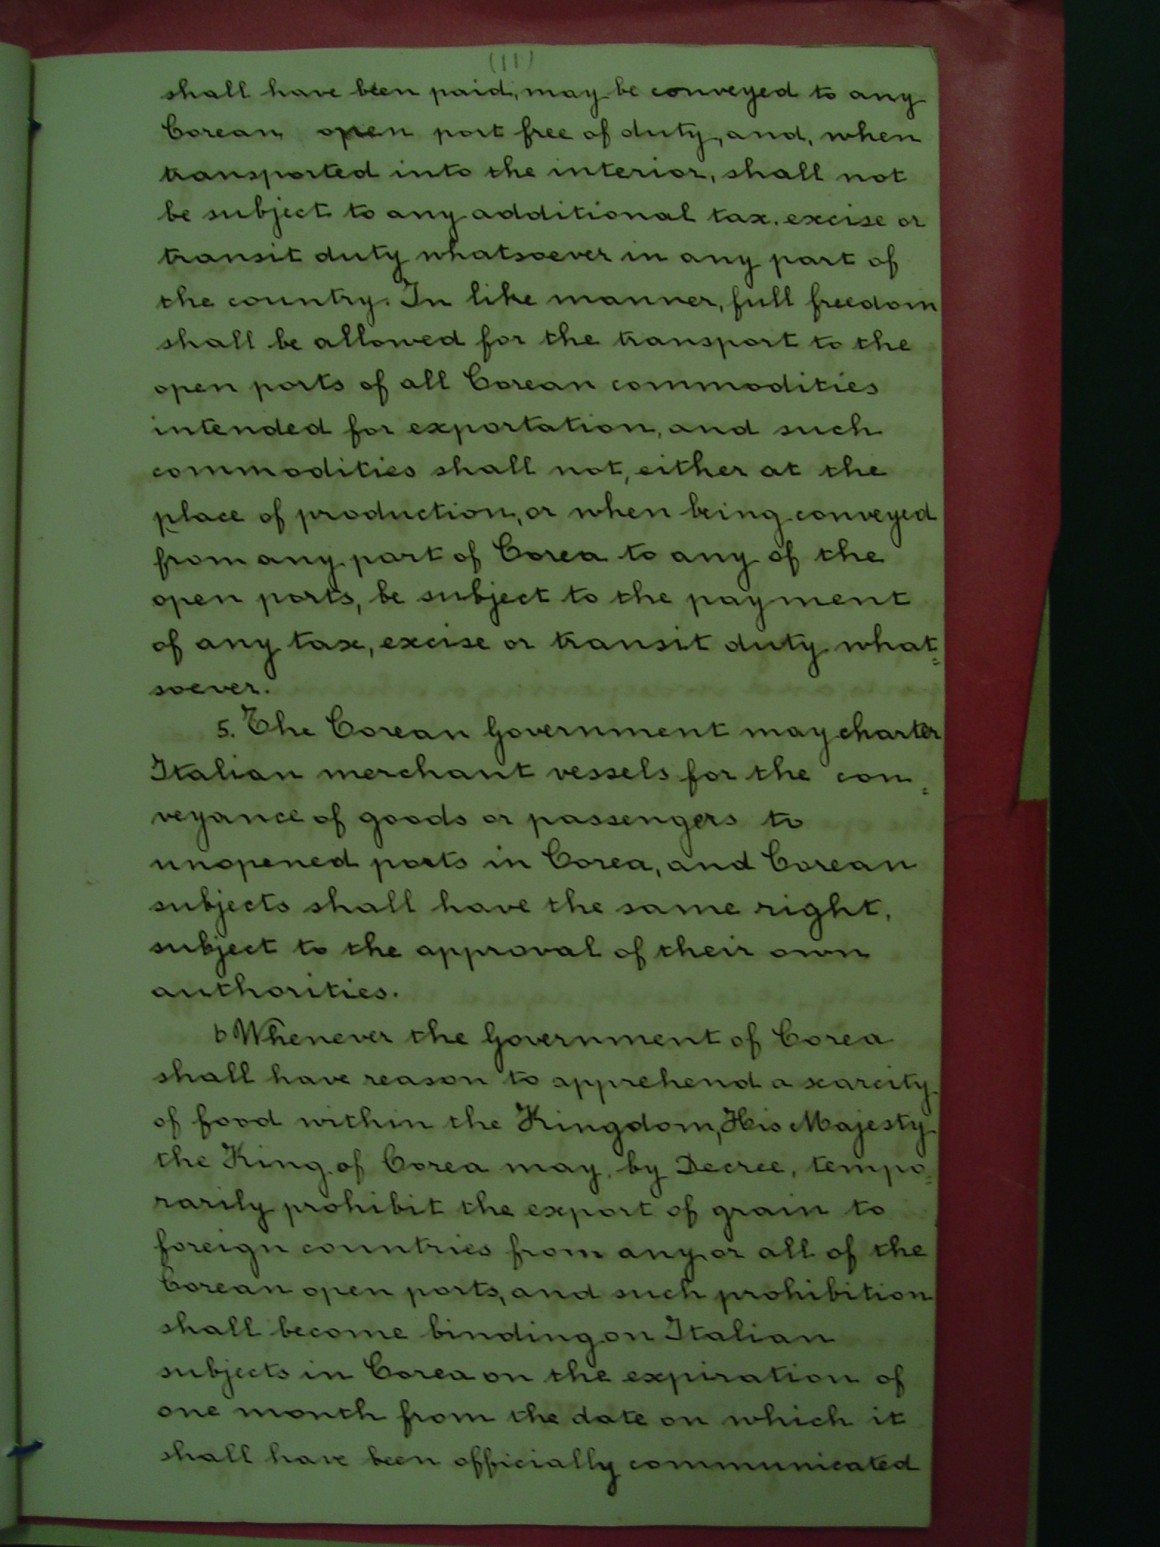 (11)
shall have been paid, may be conveyed to any
Corean open port free of duty, and, when
transported into the interior, shall not
be subject to any additional tax, excise or
transit duty whatsoever in any part of
the country. In like manner, full freedom
shall be allowed for the transport to the
open ports of all Corean commodities
intended for exportation, and such
commodities shall not, either at the
place of production, or when being conveyed
from any part of Corea to any of the
open ports, be subject to the payment
of any tax, excise or transit duty what=
soever.
5. The Corean Government may charter
Italian merchant vessels for the con=
veyance of goods or passengers to
unopened ports in Corea, and Corean
subjects shall have the same right,
subject to the approval of their own
authorities.
6 Whenever the Government of Corea
shall have reason to apprehend a scarcity
of food within the Kingdom, His Majesty
the King of Corea may, by Decree, tempo=
rarily prohibit the export of grain to
foreign countries from any or all of the
Corean open ports, and such prohibition
shall become binding on Italian
subjects in Corea on the expiration of
one month from the date on which it
shall have been officially communicated